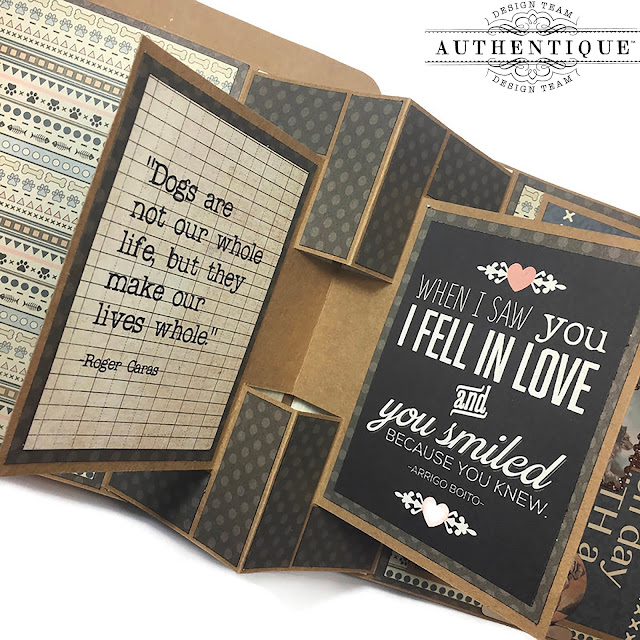 DESIGN TEAM
AUTHENTIQUE™
DESIGN TEAM
"Dogs are
not our whole
life, but they
make our
lives whole."
-Roger Caras
WHEN I SAW you
I FELL IN LOVE
and
you smiled
BECAUSE YOU KNEW.
-ARRIGO BOITO-
day
TH a